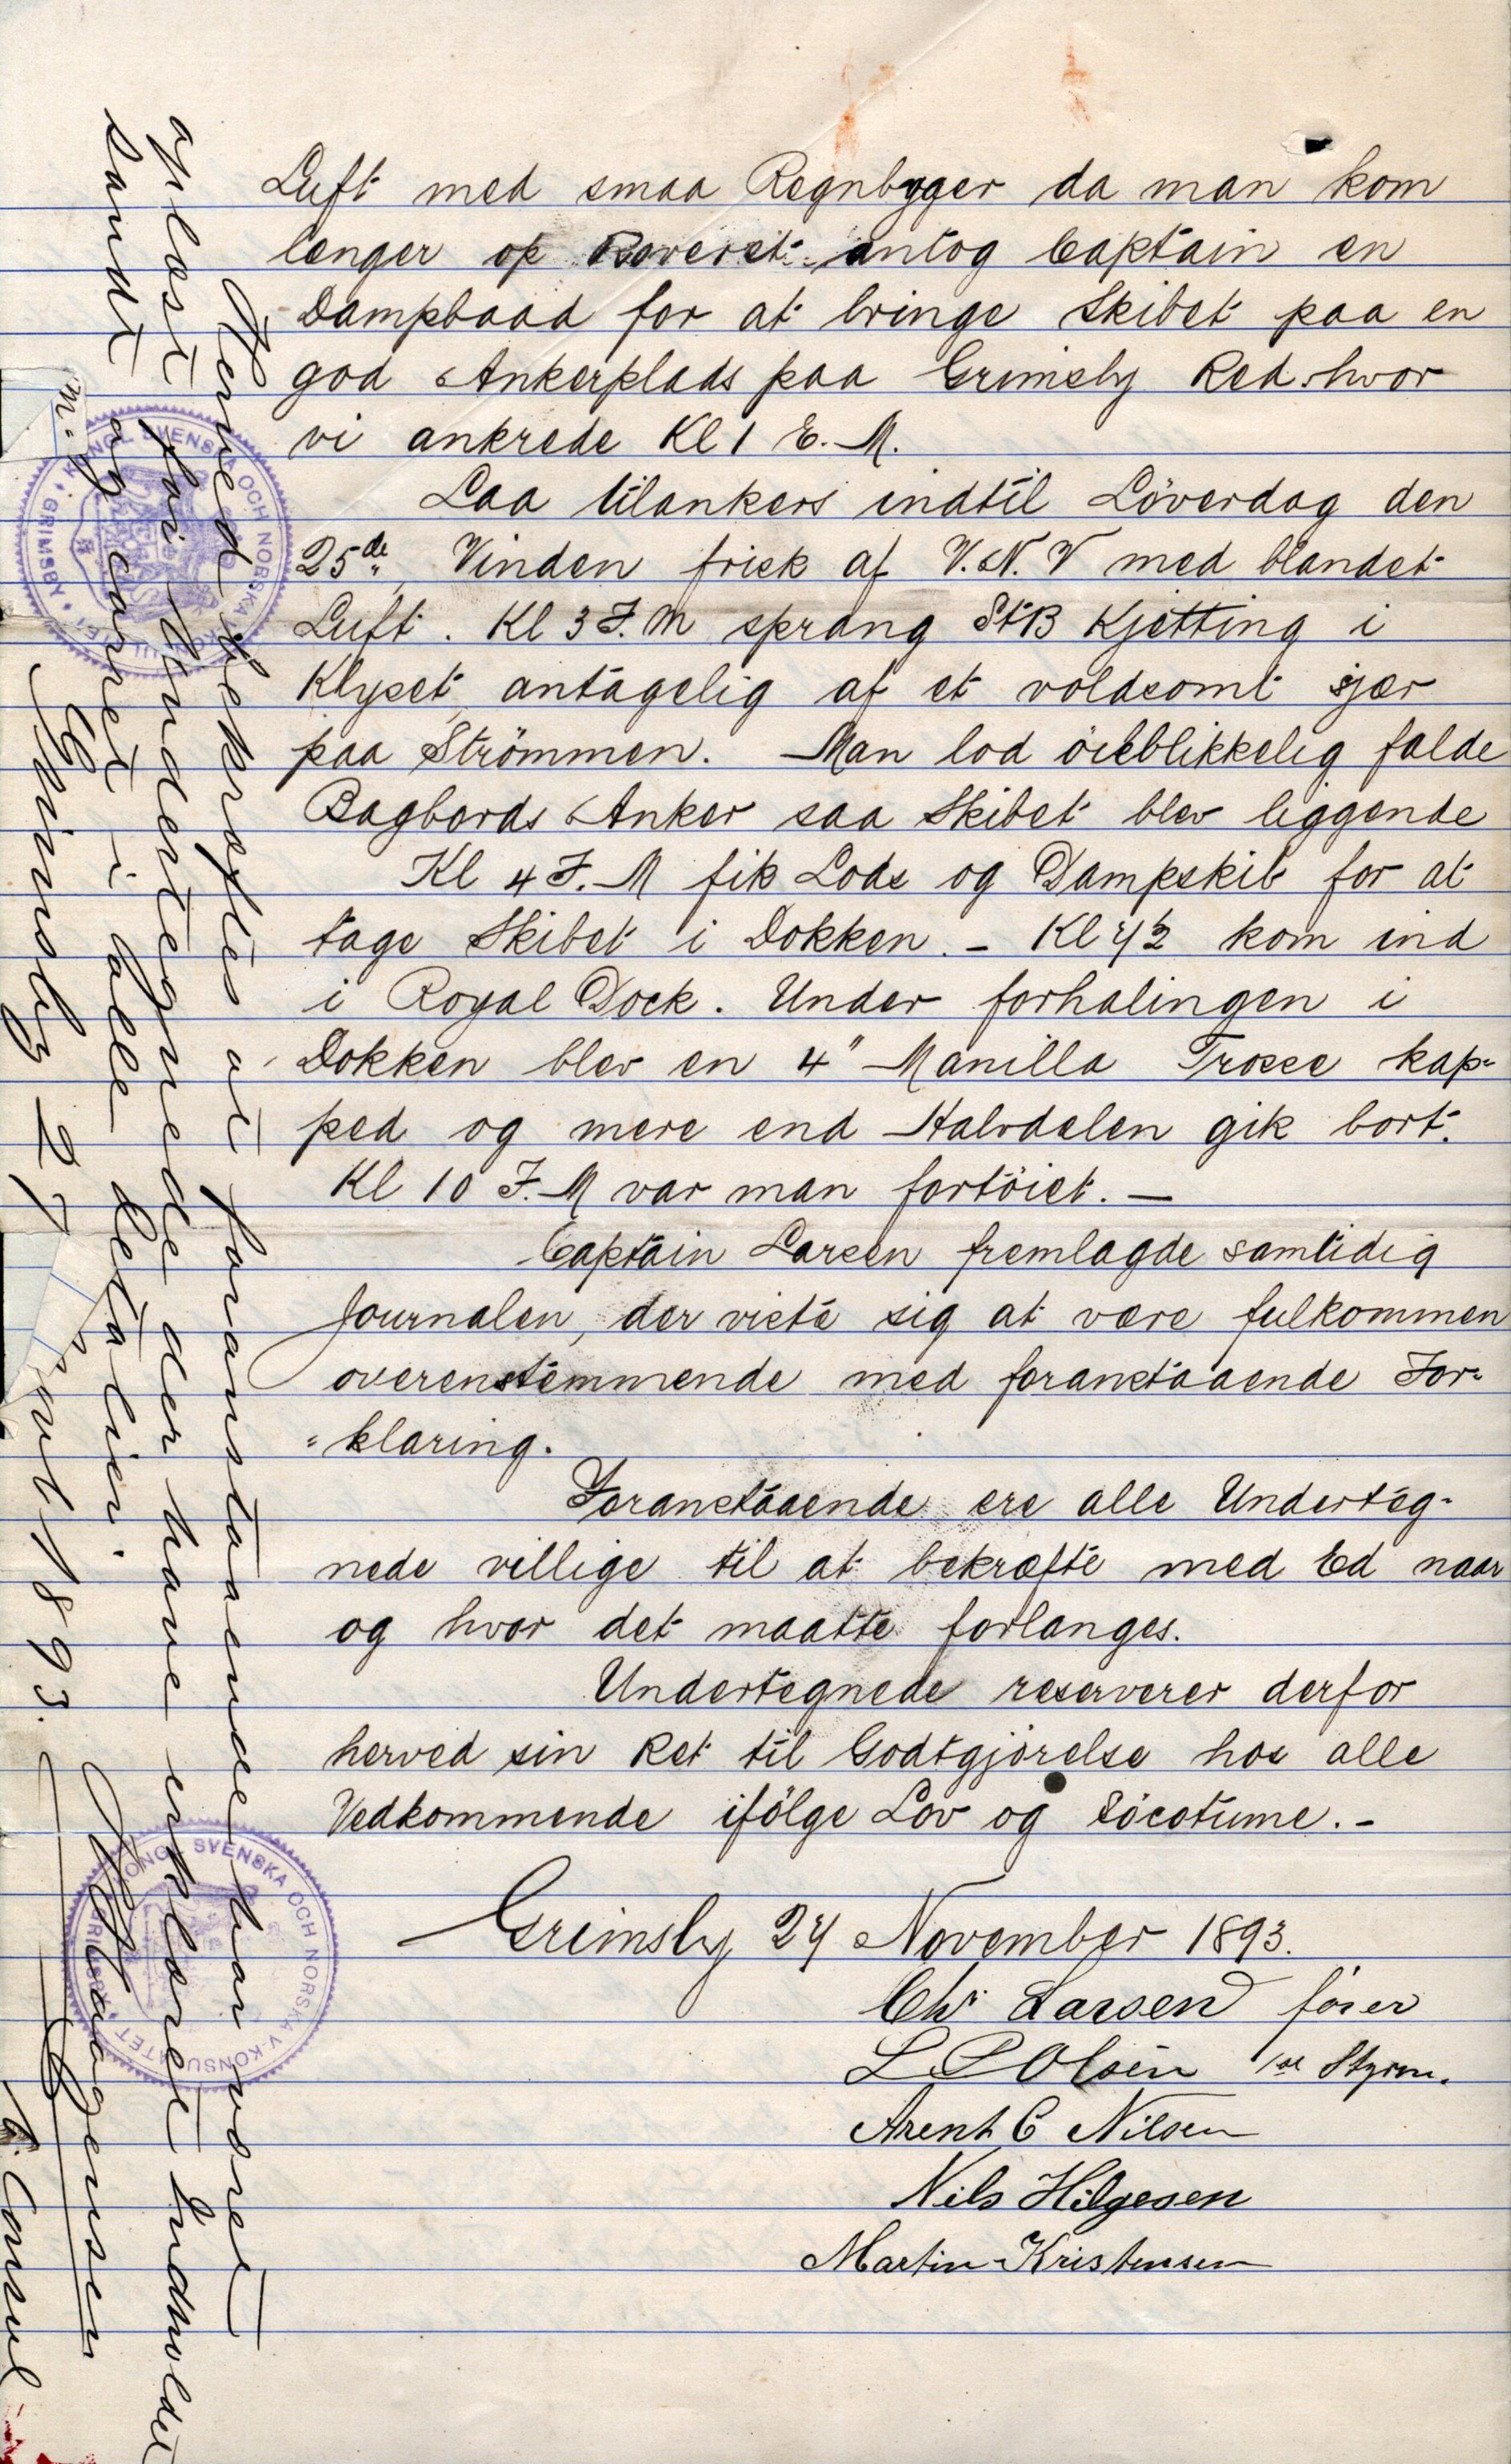 Luft med smaa Regnbyger da man kom
længer op Reveret antog Captain en
Dampbaad for at bringe Skibet paa en
god Ankerplads paa Grimsby Red, hvor
vi ankrede Kl 1 E. M.
Laa tilankers indtil Löverdag den
25de, Vinden frisk af V. N. V med blandet
Luft. Kl 3 F. M sprang StB Kjetting i
Klyset antagelig af et voldsomt sjær
paa Strömmen. Man lod öieblikkelig falde
Bagbords Anker saa Skibet blev liggende
Kl 4 F. M fik Lods og Dampskib for at
tage Skibet i Dokken. - Kl 4½ kom ind
i Royal Dock. Under forhalingen i
Dokken blev en 4" Manilla Trosse kap-
ped og mere end Halvdelen gik bort.
Kl 10 F. M var man fortöiet. —
Captain Larsen fremlagde samtidig
Journalen, der viste sig at være fulkommen
overenstemmende med foranstaaende For-
=klaring.
Foranstaaende ere alle Underteg-
nede villige til at bekræfte med Ed naar
og hvor det maatte forlanges.
Undertegnede reserverer derfor
herved sin Ret til Godtgjörelse hos alle
Vedkommende ifölge Lov og Söcotume. -
Grimsby 27 November 1893.
Chr Larsen förer
L P Olsen 1ste Styrm.
Arent C Nilsen
Nils Hilgesen
Martin Kristensen
Herved bekræftes at foranstaaende har været
oplæst for Undertegnede der have erklæret Indholdet
sandt og correct i alle Detalier.
Grimsby 27 Novbr 1893.
Haagensen
V. Consul
KONGL SVENSKA OCH NORSKA V. KONSULATET GRIMSBY
KONGL SVENSKA OCH NORSKA V. KONSULATET GRIMSBY